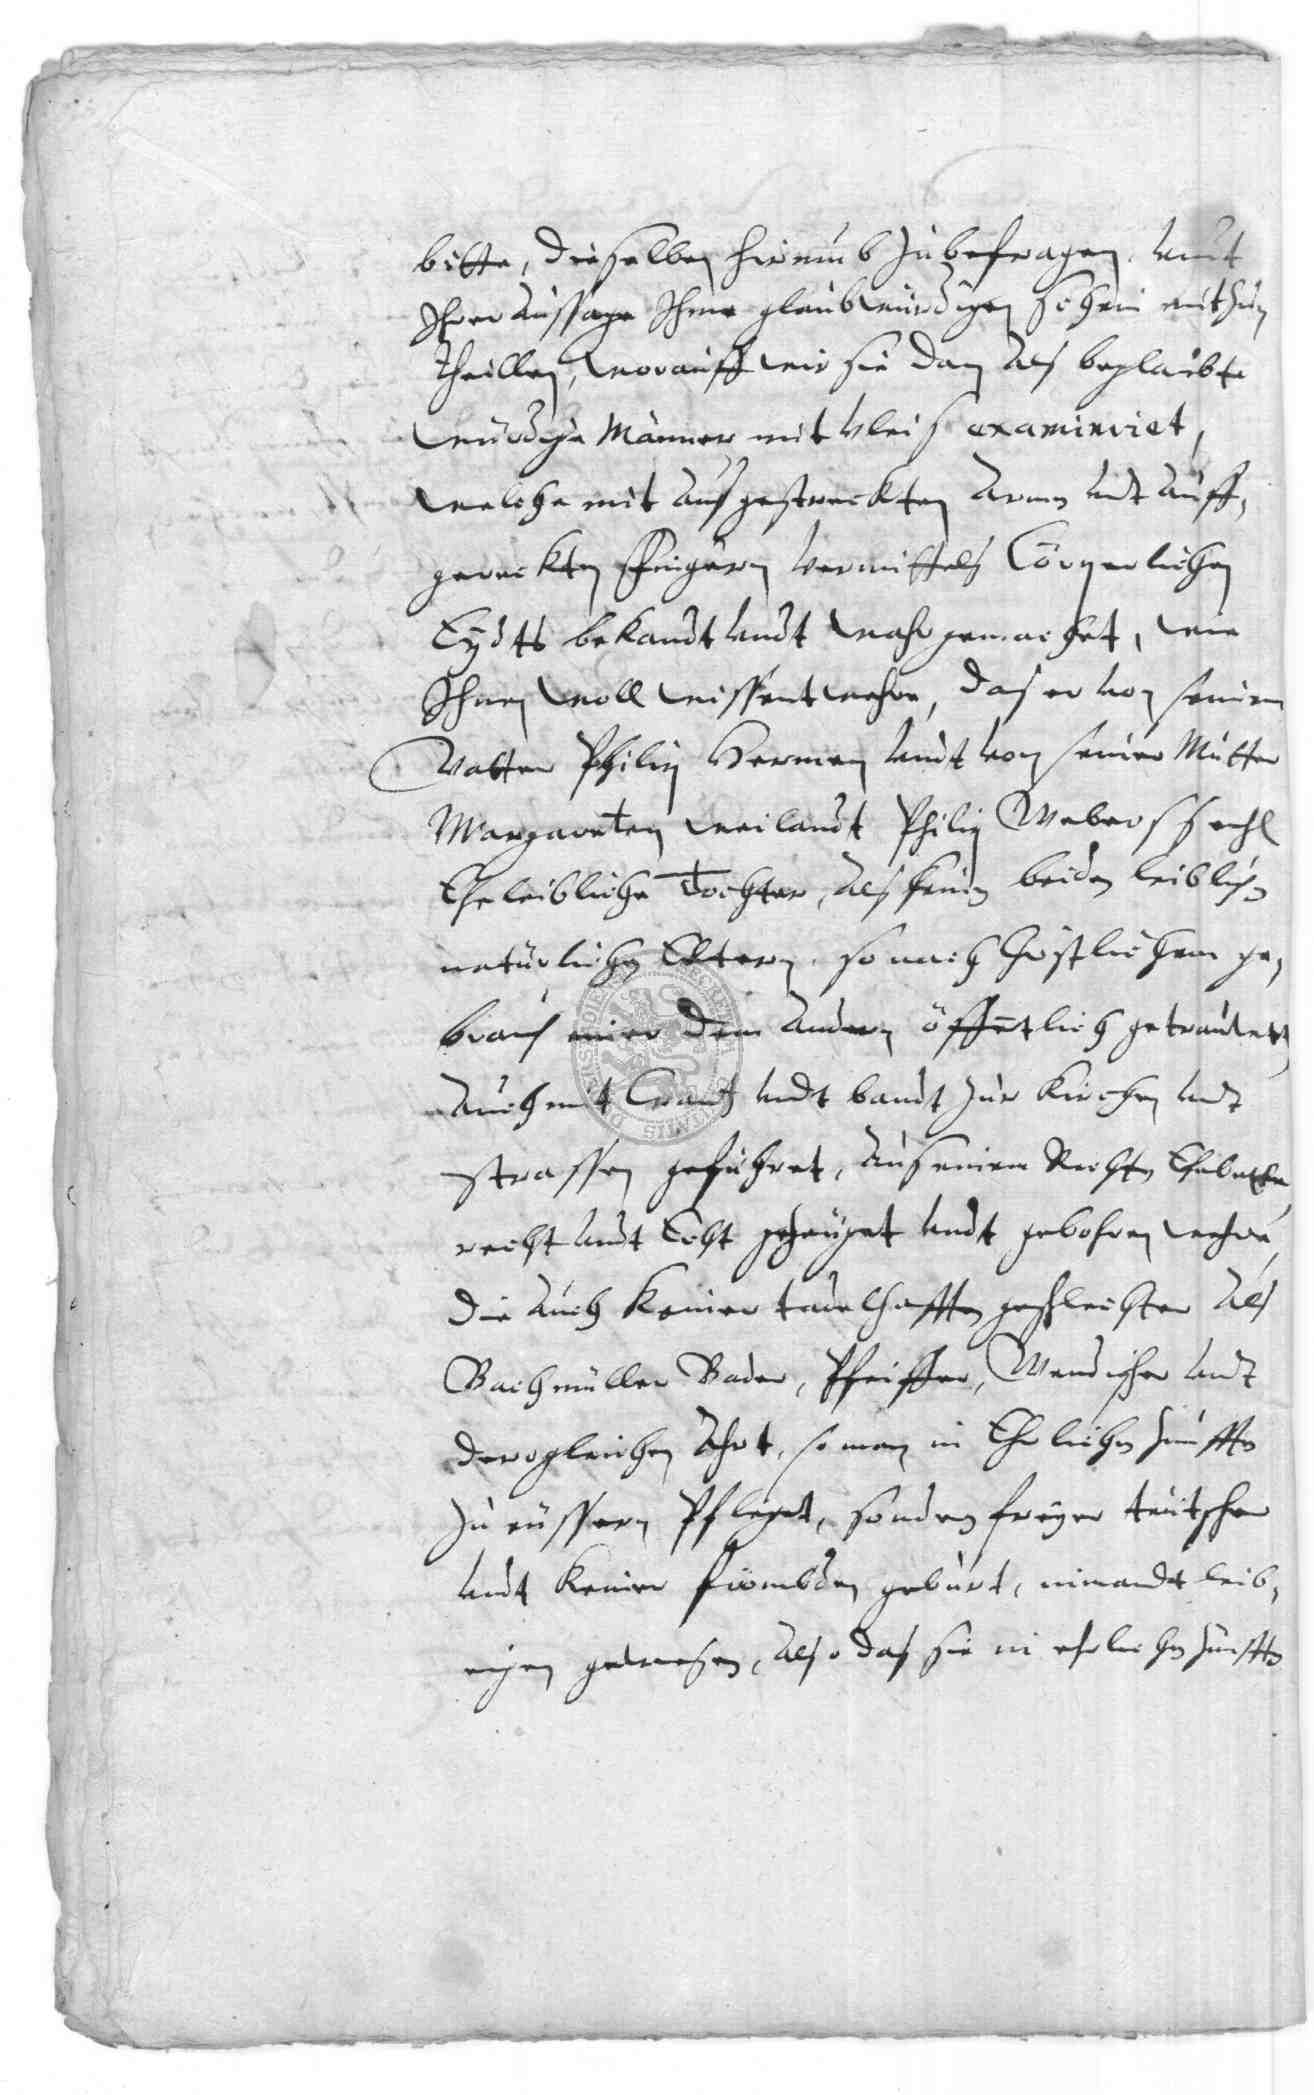 bitte, dieselben hierumb zubefragen, undt
Ihrer Aussage Ihme glaubwürdigen schein mitzu
theillen, worauff wir sie dan als beglaubte
würdige Männer mit vleis examiniret,
welche mit ausgestreckten Armen undt auff,
gereckten Fingern vermittels Cörperlichen
Eydts bekandt undt wahr gemachet, wie
Ihnen woll wissent wehre, das er von seinem
Vatter Philip Herman undt von seiner Mutter
Margareten weilandt Philip Webers sehl
Eheleibliche Tochter, als seinen beiden leiblichen
natürlichen Eltern, so nach Christlichem ge,
brauch einer dem Andern öffentlich getrauwet,
Auch mit Crantz undt bandt zur Kirchen undt
strassen geführet, Aus einem Rechten Ehebette
recht undt Echt gezeuget undt gebohren wehre,
die auch keiner tadelhafften geschlechter als
Bachmüller Bader, Pfeiffer, Wendischer undt
dergleichen Ahrt, so man in Ehrlichen Zunfften
zu eüssern Pfleget, sondern freyer teütscher
undt keiner frömbden geburt, niemandt leib,
eigen gewesen, also das sie in ehrlichen Zunfften